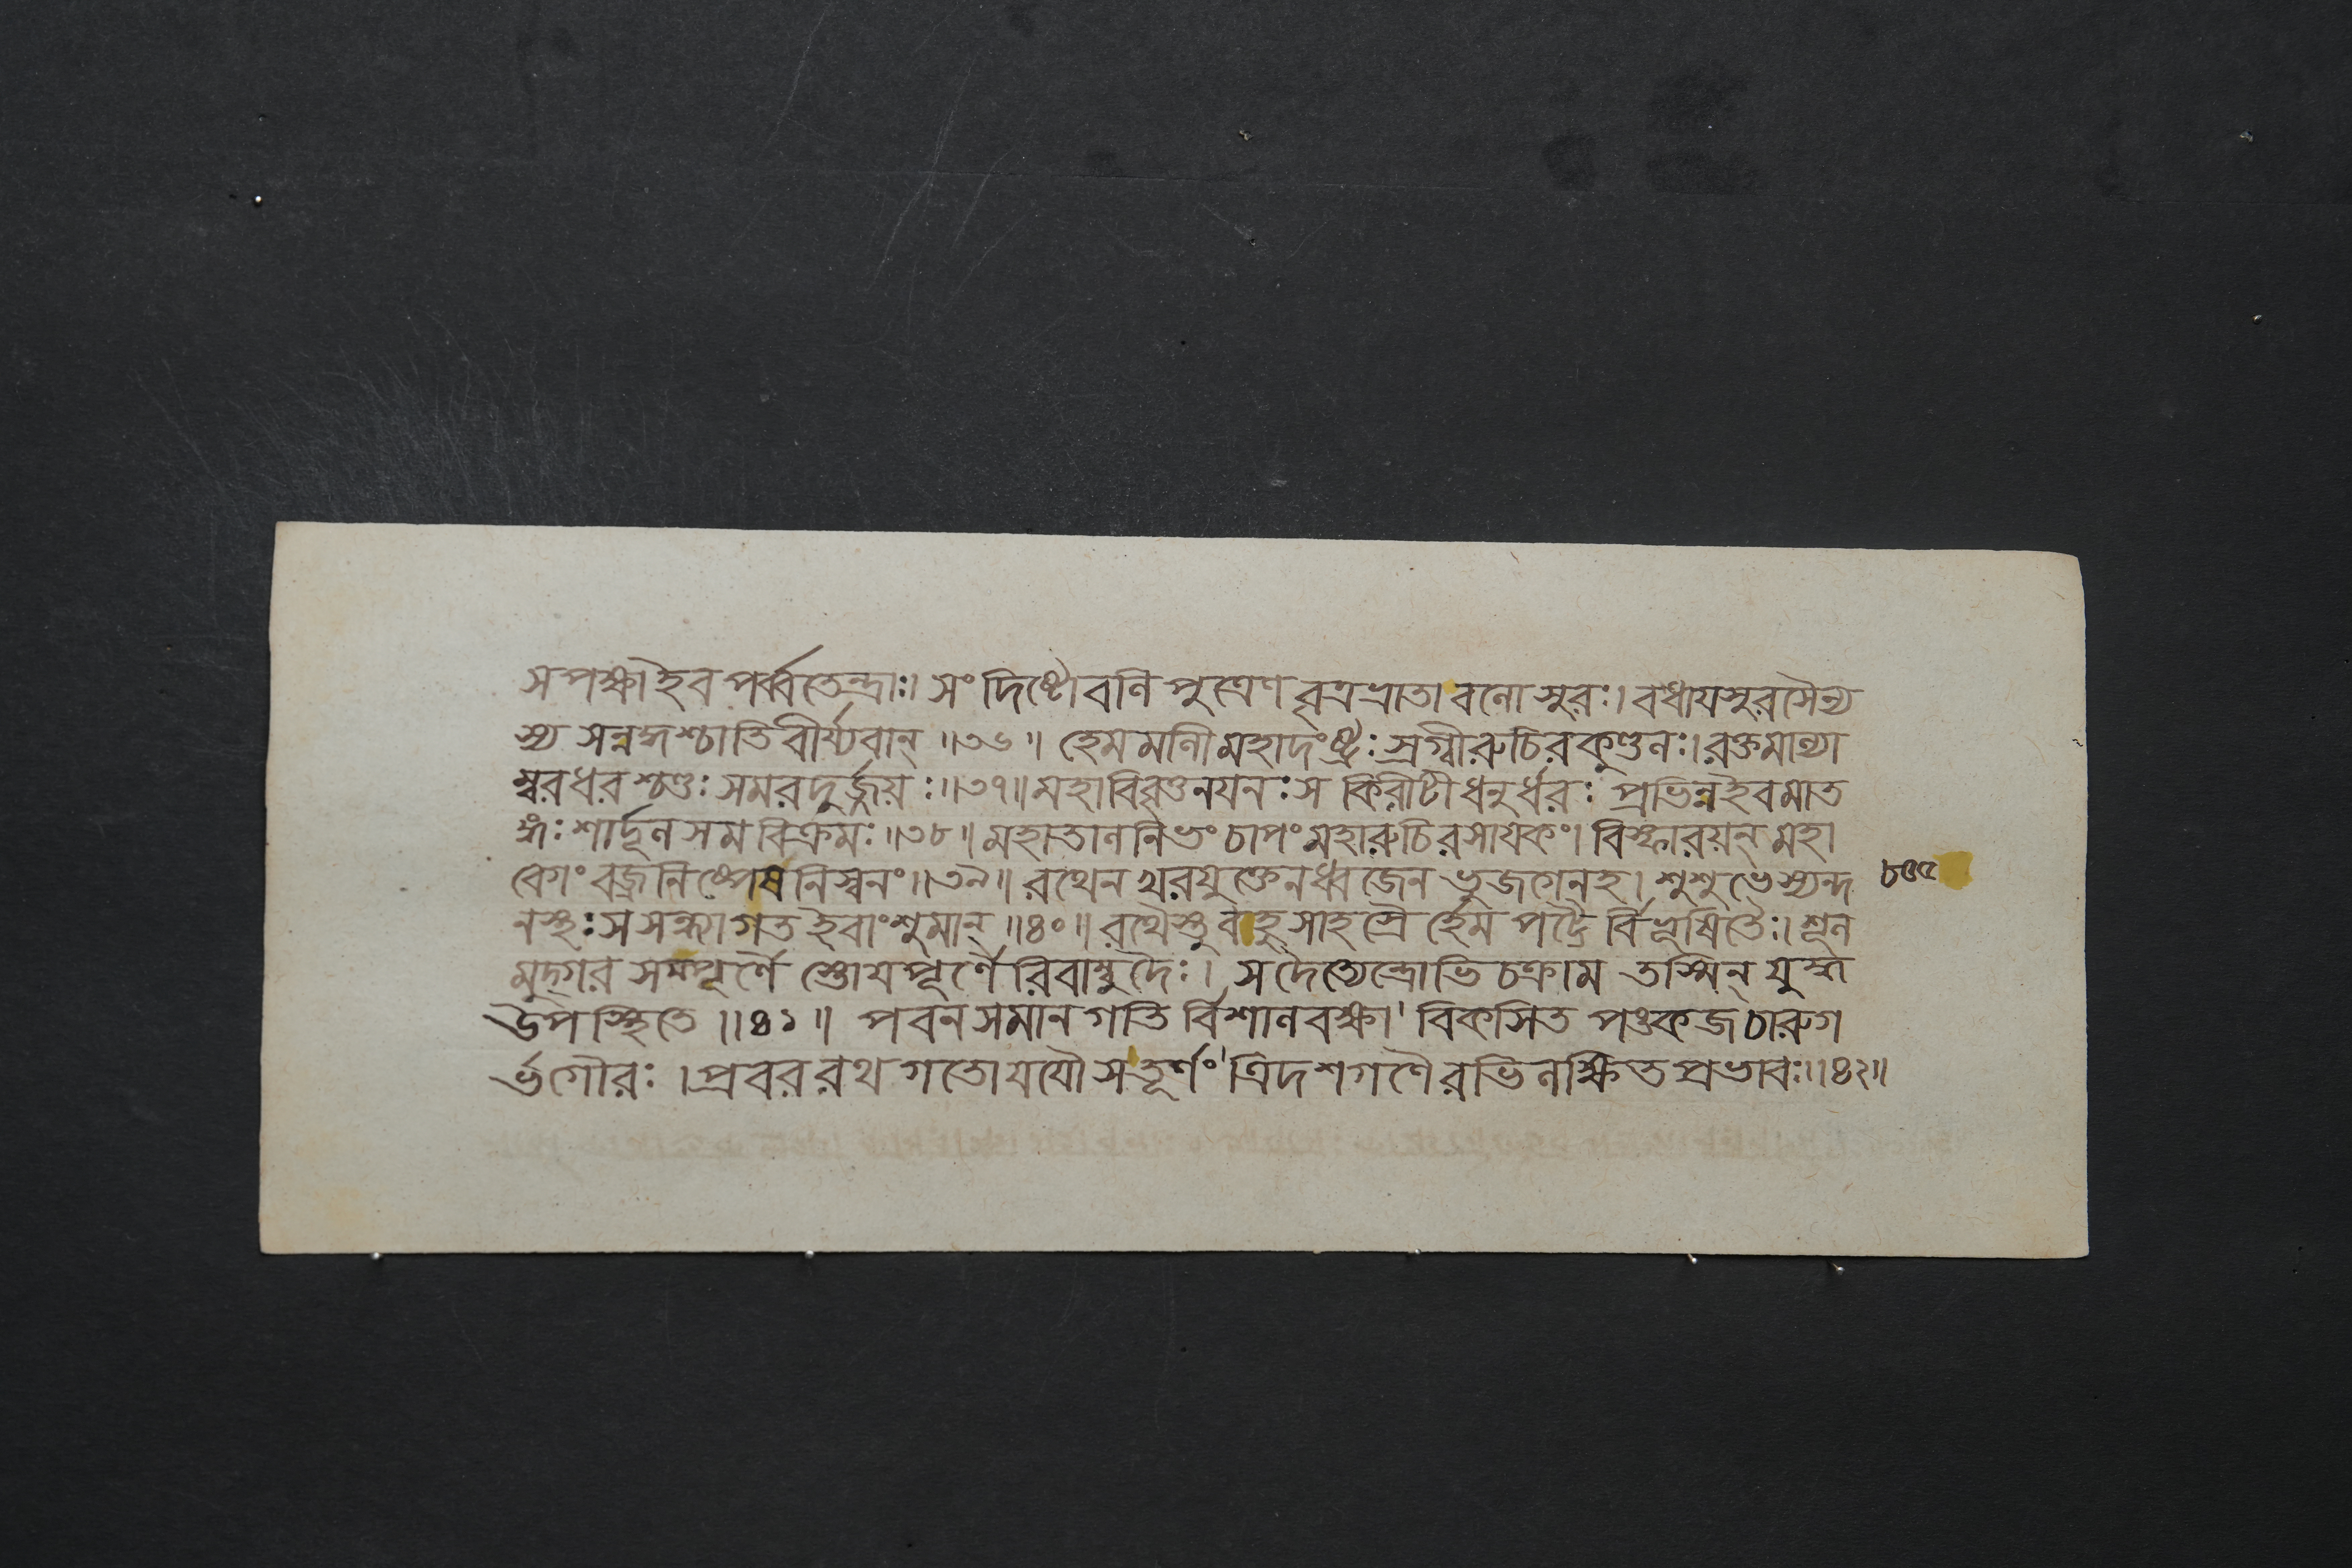 সপক্ষাইব পর্ব্বতেন্দ্রাঃ। সংদিষ্টোবলি পুত্রেণ বৃত্রভ্রাতা বলোসুরঃ। বধায়সুরসৈন্য
স্য সন্নদ্ধশ্চাতি বীর্য্যবান্ ॥৩৬॥ হেমমালী মহাদংষ্ট্রঃ স্রগ্বীরুচিরকুণ্ডলঃ। রক্তমাল্যা
ম্বরধরশ্চণ্ডঃ সমরদুর্জ্জয়ঃ॥৩৭॥ মহাবিবৃত্তনয়নঃ স কিরীটী ধনুর্ধরঃ প্রভিন্নইবমাত
ঙ্গঃ শার্দূলসমবিক্রমঃ॥৩৮॥ মহাতালনিভং চাপং মহারুচিরসায়কং। বিস্ফারয়ন্ মহা
বেগং বজ্রনিষ্পেষনিস্বনং॥৩৯॥ রথেন খরযুক্তেনধ্বজেন ভুজগেনহ। শুশুভেস্যন্দ
নস্থঃ সসন্ধ্যাগত ইবাংশুমান্ ॥৪০॥ রথৈস্তু বাহুসাহস্রৈর্হেমপট্টৈর্বিভূষিতৈঃ। শূল
মুদ্গর সম্পূর্ণৈস্তোয়পূর্ণৈরিবাম্বুদৈঃ। সদৈত্যেন্দ্রোভিচক্রাম তস্মিন্ যুদ্ধ
উপস্থিতে ॥৪১॥ পবনসমানগতির্বিশালবক্ষা' বিকসিত পঙ্কজচারুগ
র্ভগৌরঃ। প্রবররথগতোযযৌসতূর্ণং' ত্রিদশগণৈরভিলক্ষিতপ্রভাবঃ॥৪২॥